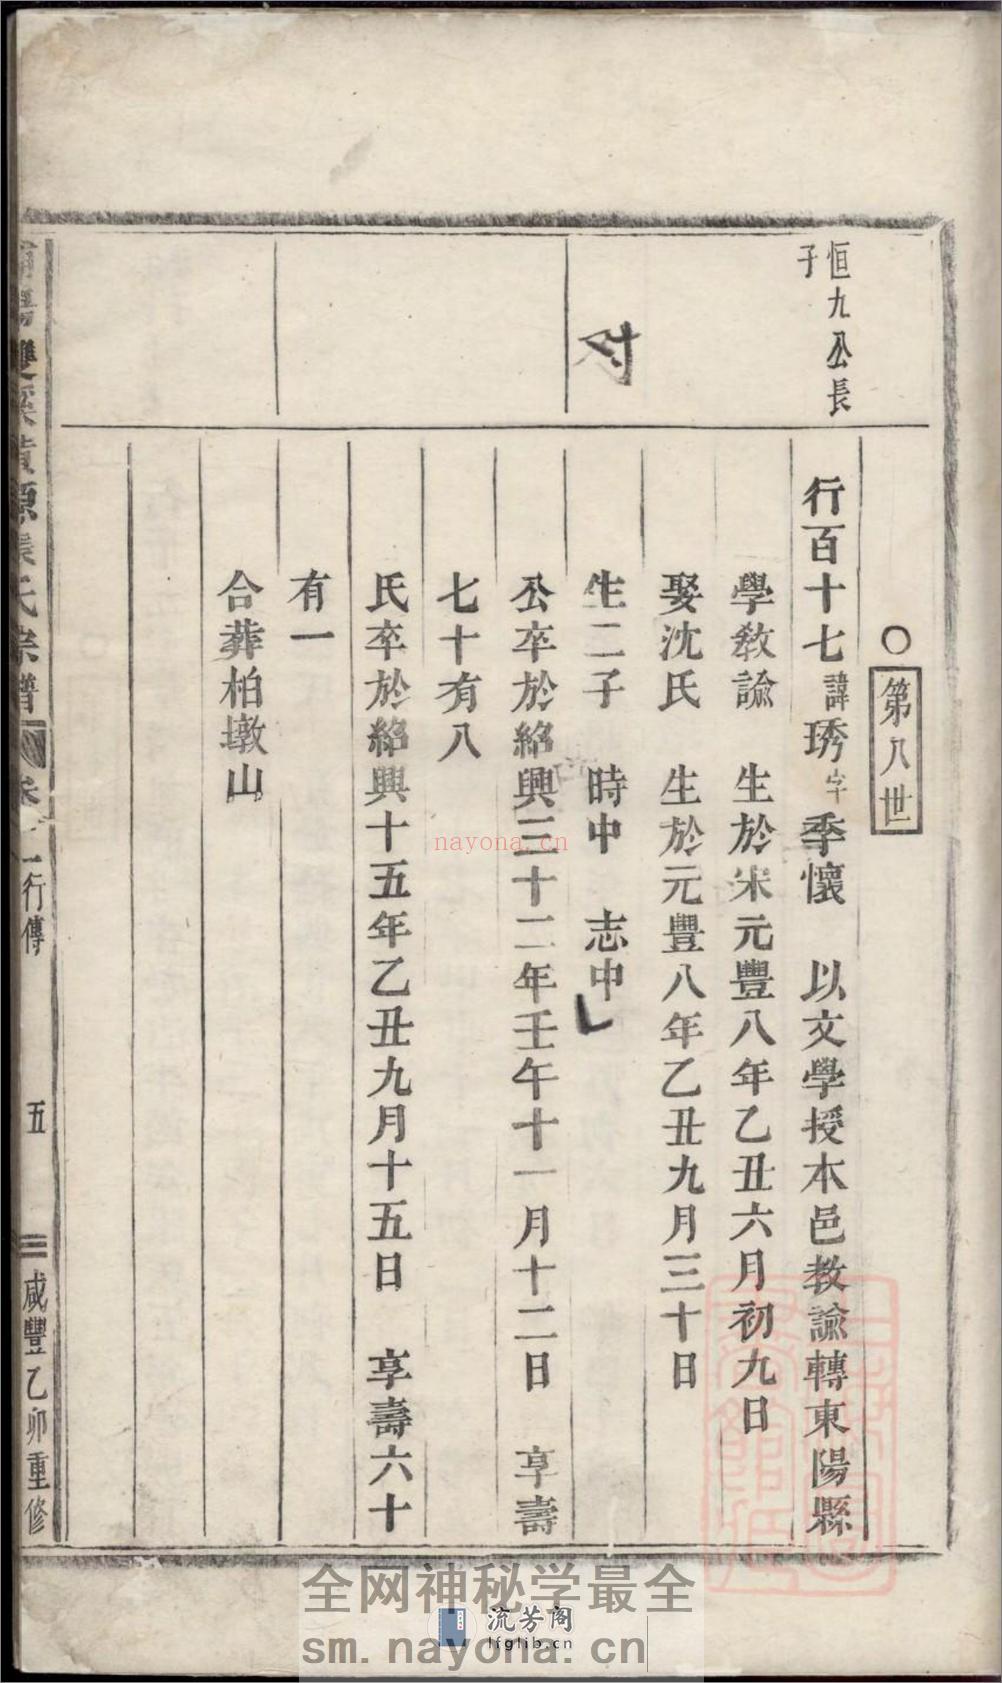 〇第八世
恒九公長
子
行百十七諱琇字季懷　以文學授本邑教諭轉東陽縣
學教諭　生於宋元豐八年乙丑六月初九日
娶沈氏　生於元豐八年乙丑九月三十日
对
生二子　時中　志中
公卒於紹興三十二年壬午十一月十二日　享壽
七十有八
氏卒於紹興十五年乙丑九月十五日　享壽六十
有一
合葬柏墩山
雙溪黄源張氏宗譜 卷 一行傳 五 咸豐乙卯重修
nayona.cn
全网神秘学最全
流芳阁
lfglib.cn
sm.nayona.cn